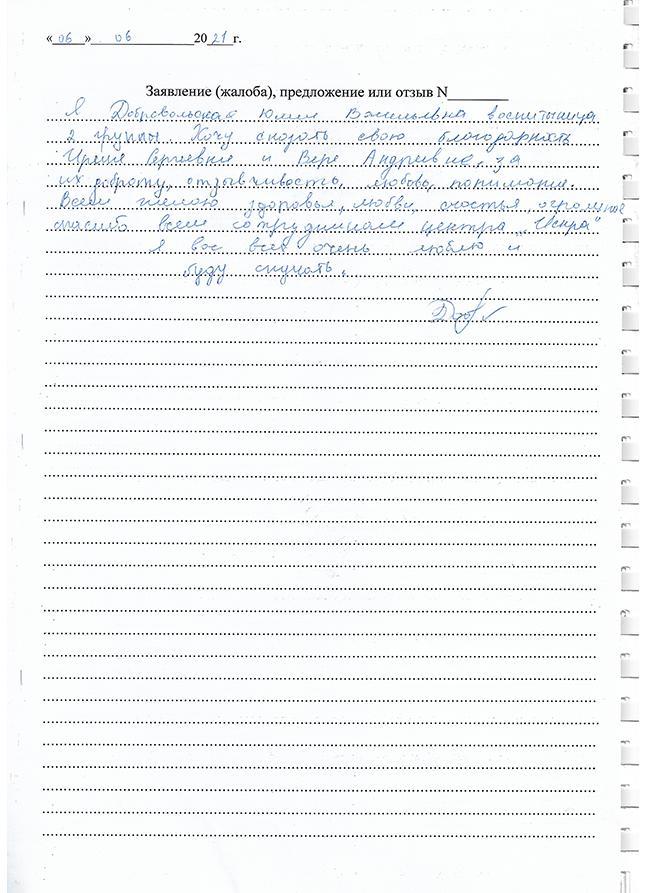 « 06 » 06 20 21 г.
Заявление (жалоба), предложение или отзыв N________
Я Добровольская Юлия Васильевна воспитаница
2 группы. Хочу сказать свою благодарность
Ирине Сергеевне и Вере Андреевне, за
их доброту, отзывчивость, любовь, понимание.
Всем желаю здоровья, любви, счастья, огромное
спасибо всем сотрудникам центра „Искра"
Я вас всех очень люблю и
буду скучать.